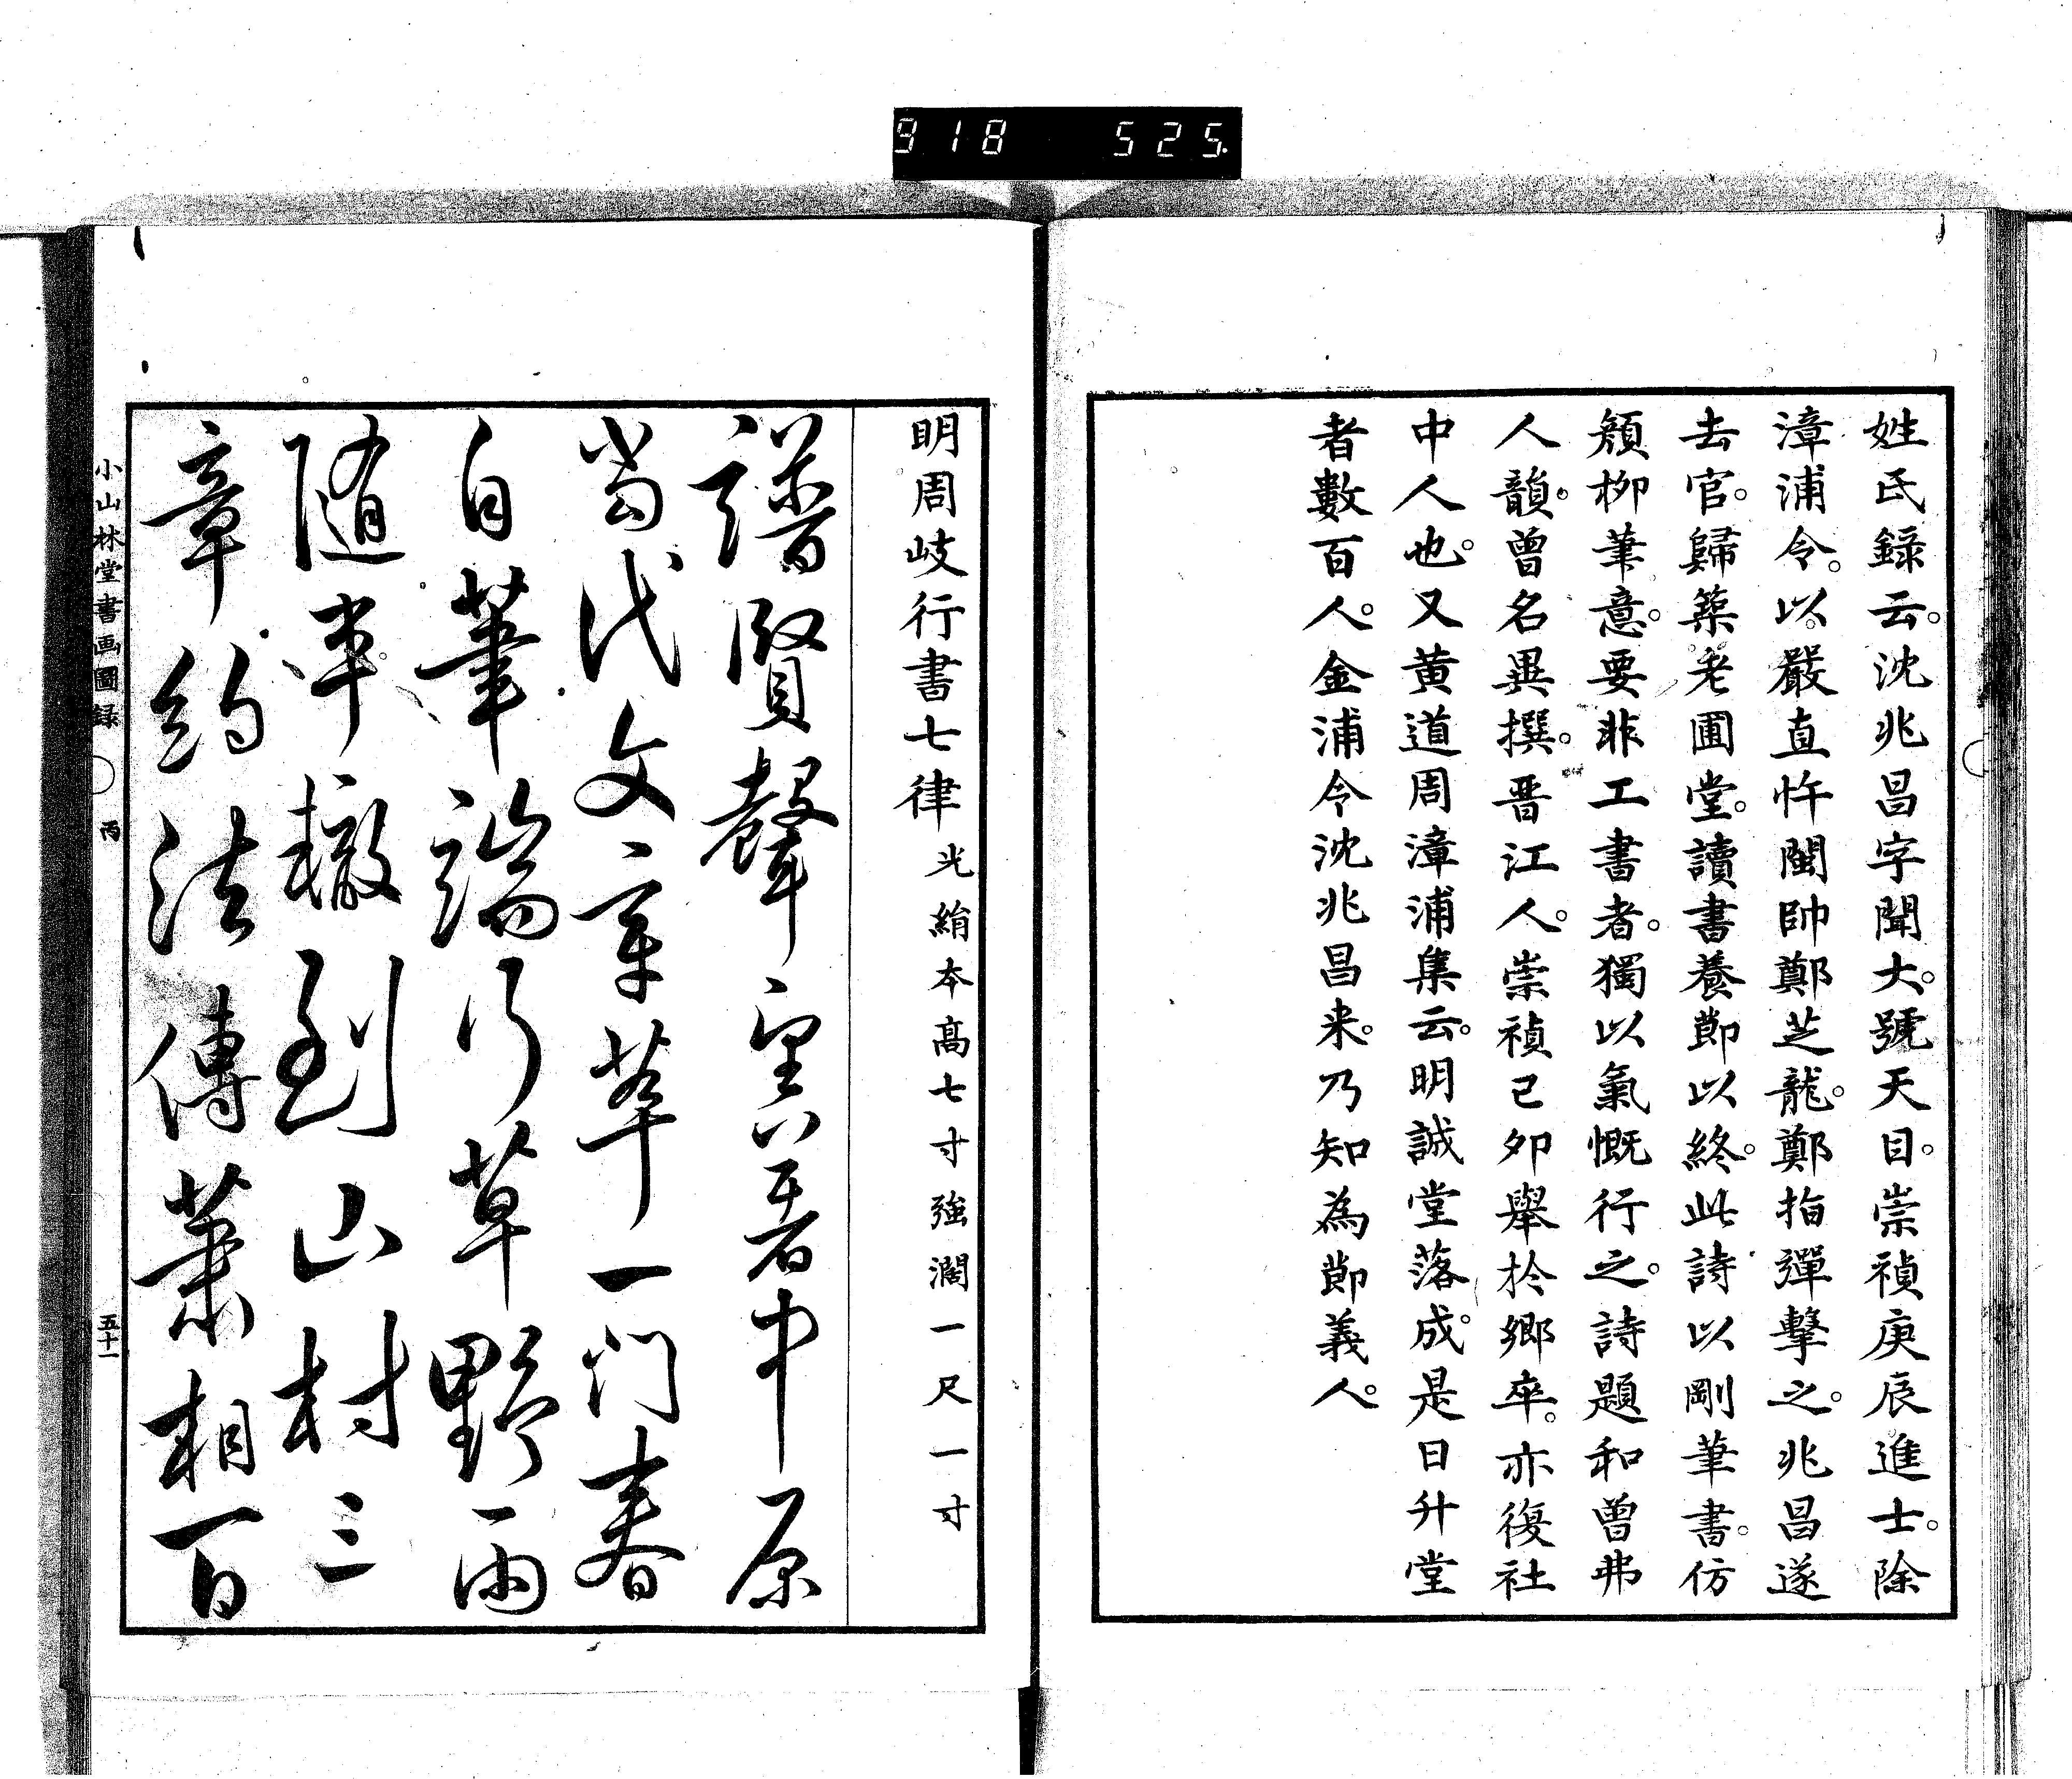 918 525.
姓氏錄云。沈兆昌字聞大。號天目。崇禎庚辰進士。除
漳浦令。以嚴直忤閩帥鄭芝龍。鄭指彈擊之。兆昌遂
去官。歸築老圃堂。讀書養節以終。此詩以剛筆書。仿
顏柳筆意。要非工書者。獨以氣慨行之。詩題和曾弗
人韻。曾名異撰。晋江人。崇禎已夘舉於鄉卒。亦復社
中人也。又黄道周漳浦集云。明誠堂落成。是日升堂
者數百人。金浦令沈兆昌来。乃知為節義人。
明周岐行書七律 光絹本高七寸強濶一尺一寸
諸賢聲望著中原
當代文章萃一門春
自筆端行草野雨
隨車轍到山村三
章約法傳蕭相百
小山林堂書画圖録 丙 五十一